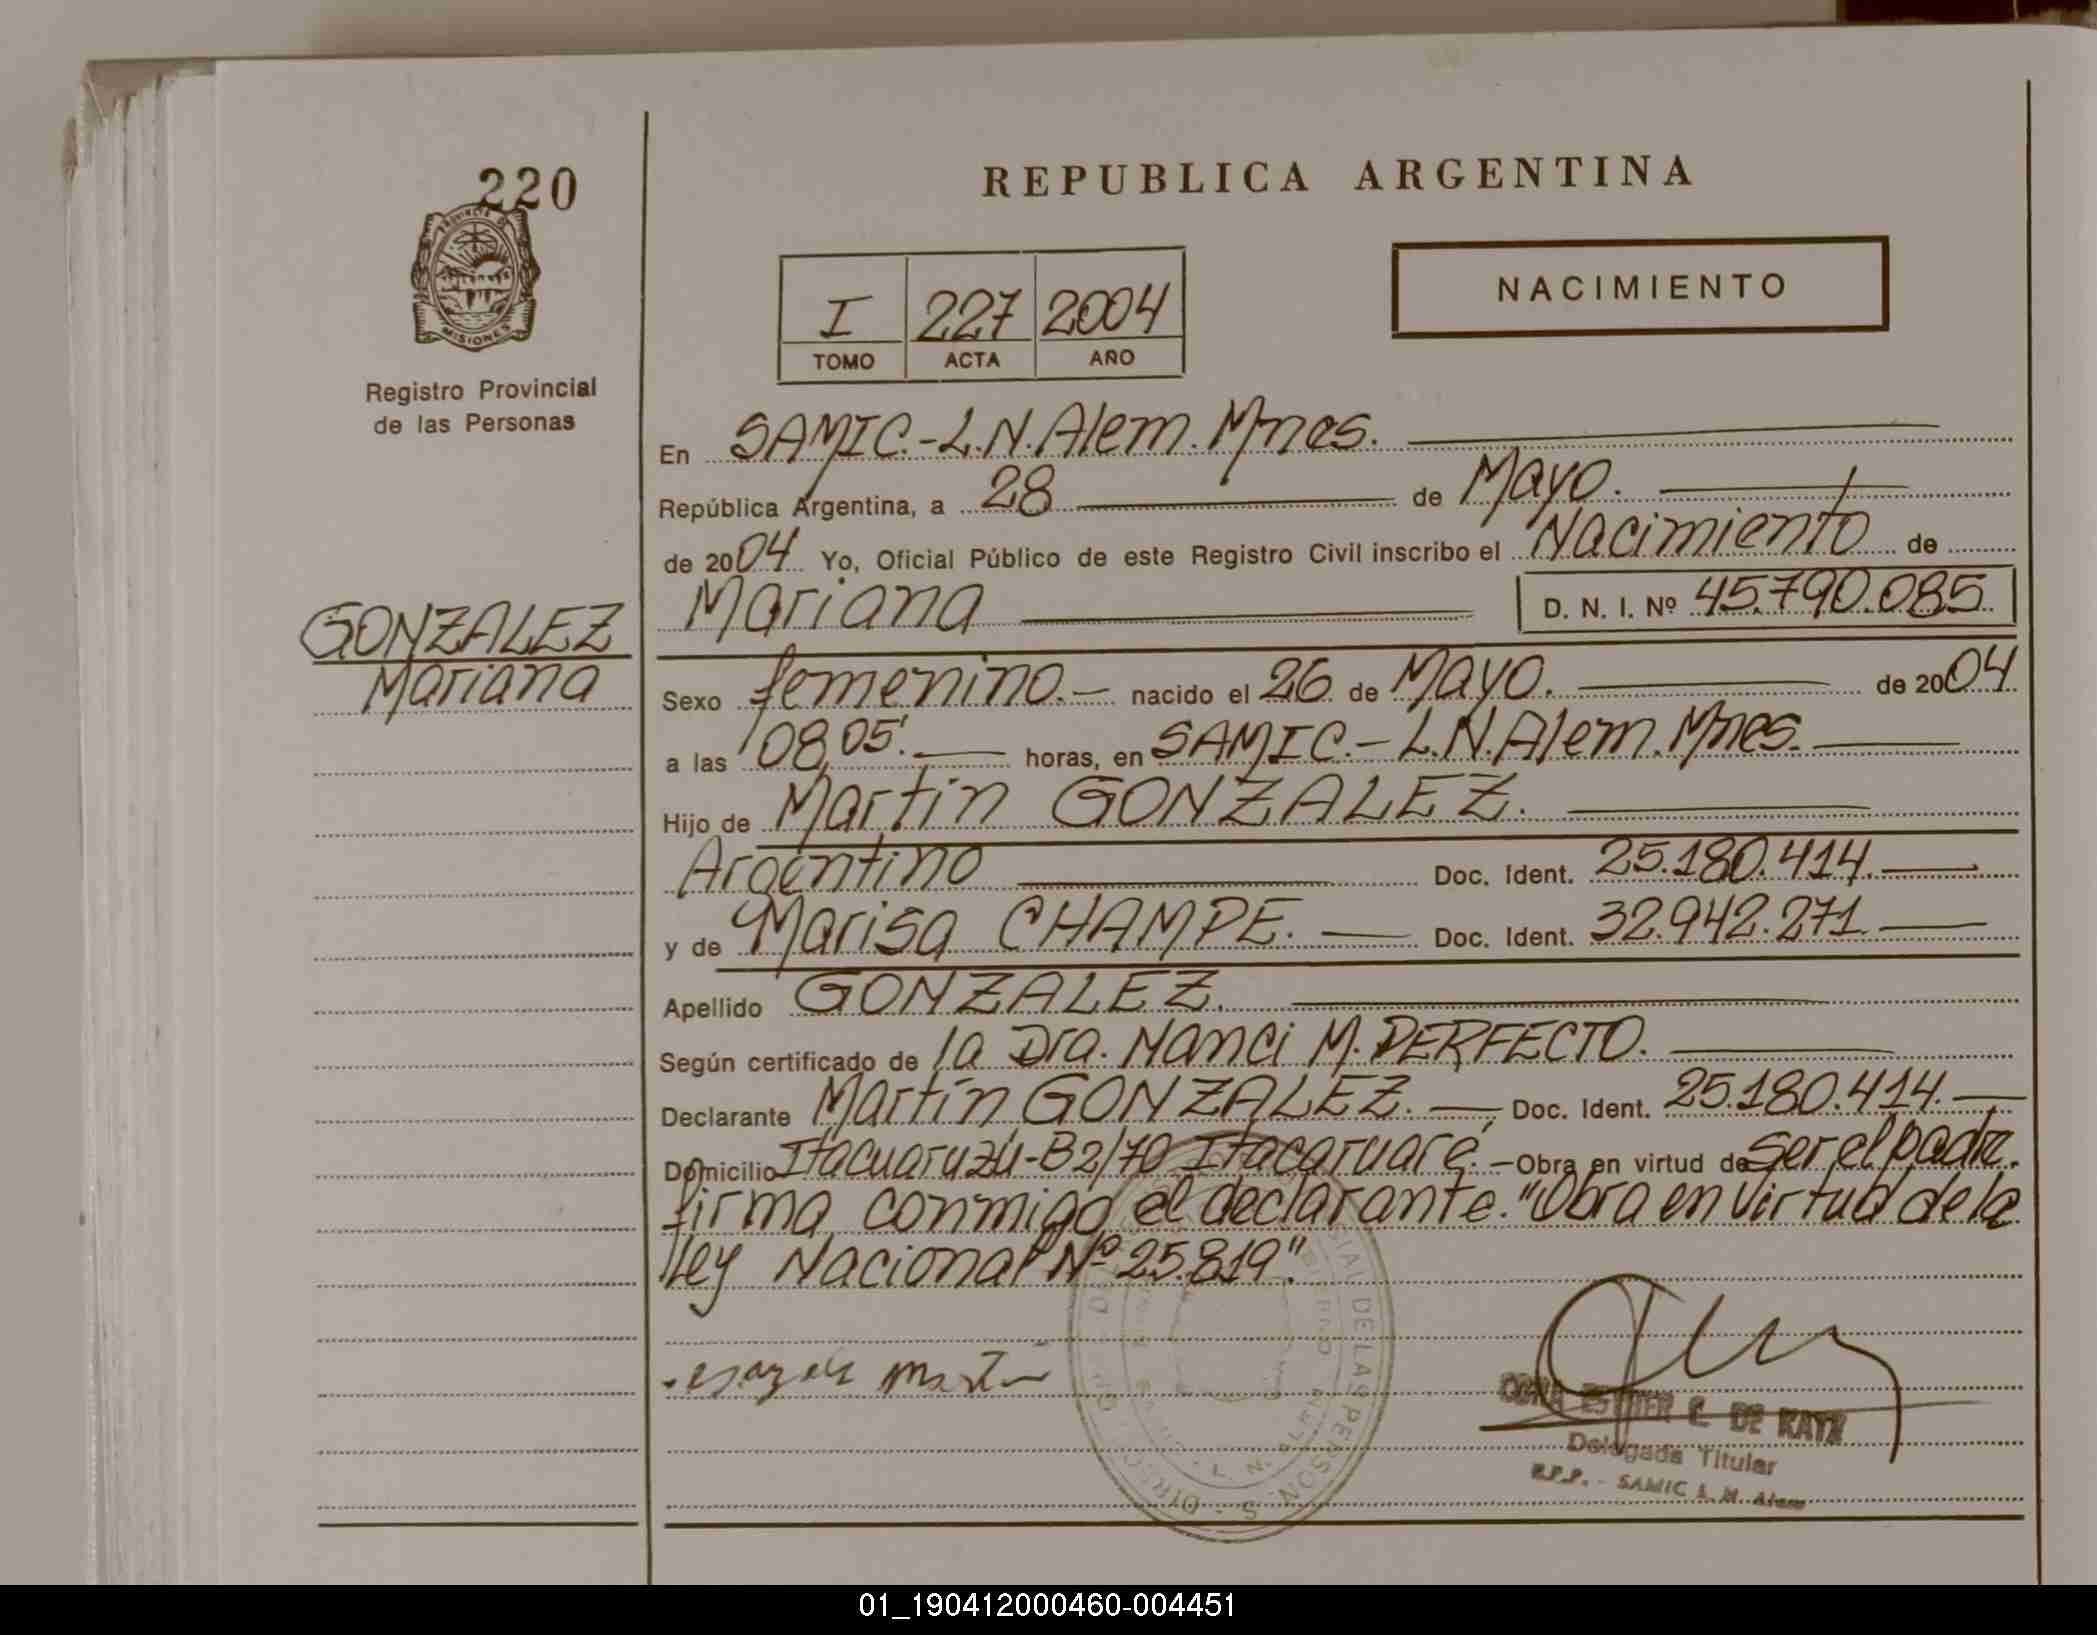 220
PROVINCIA DE
MISIONES
Registro Provincial
de las Personas
GONZALEZ
Mariana
REPUBLICA ARGENTINA
NACIMIENTO
I 227 2004
TOMO ACTA AÑO
En SAMIC.-L.N.Alem.Mnes.
República Argentina, a 28 de Mayo.
de 2004 Yo, Oficial Público de este Registro Civil inscribo el Nacimiento de
Mariana D. N. I. Nº 45.790.085
Sexo femenino.- nacido el 26 de Mayo. de 2004
a las 08,05'. horas, en SAMIC.-L.N.Alem.Mnes.
Hijo de Martin GONZALEZ.
Argentino Doc. Ident. 25.180.414.
y de Marisa CHAMPE. Doc. Ident. 32.942.271
Apellido GONZALEZ.
Según certificado de la Dra. Nanci M. PERFECTO.
Declarante Martín GONZALEZ. Doc. Ident. 25.180.414.
Domicilio Itacuaruzú-B2/70 Itacaruaré.-Obra en virtud de ser el padre.
firma conmigo el declarante."Obra en virtud de la
Ley Nacional Nº 25.819".
ESTHER C. DE
Delegada Titular
R.P.P. - SAMIC L. N. Alem
01_190412000460-004451